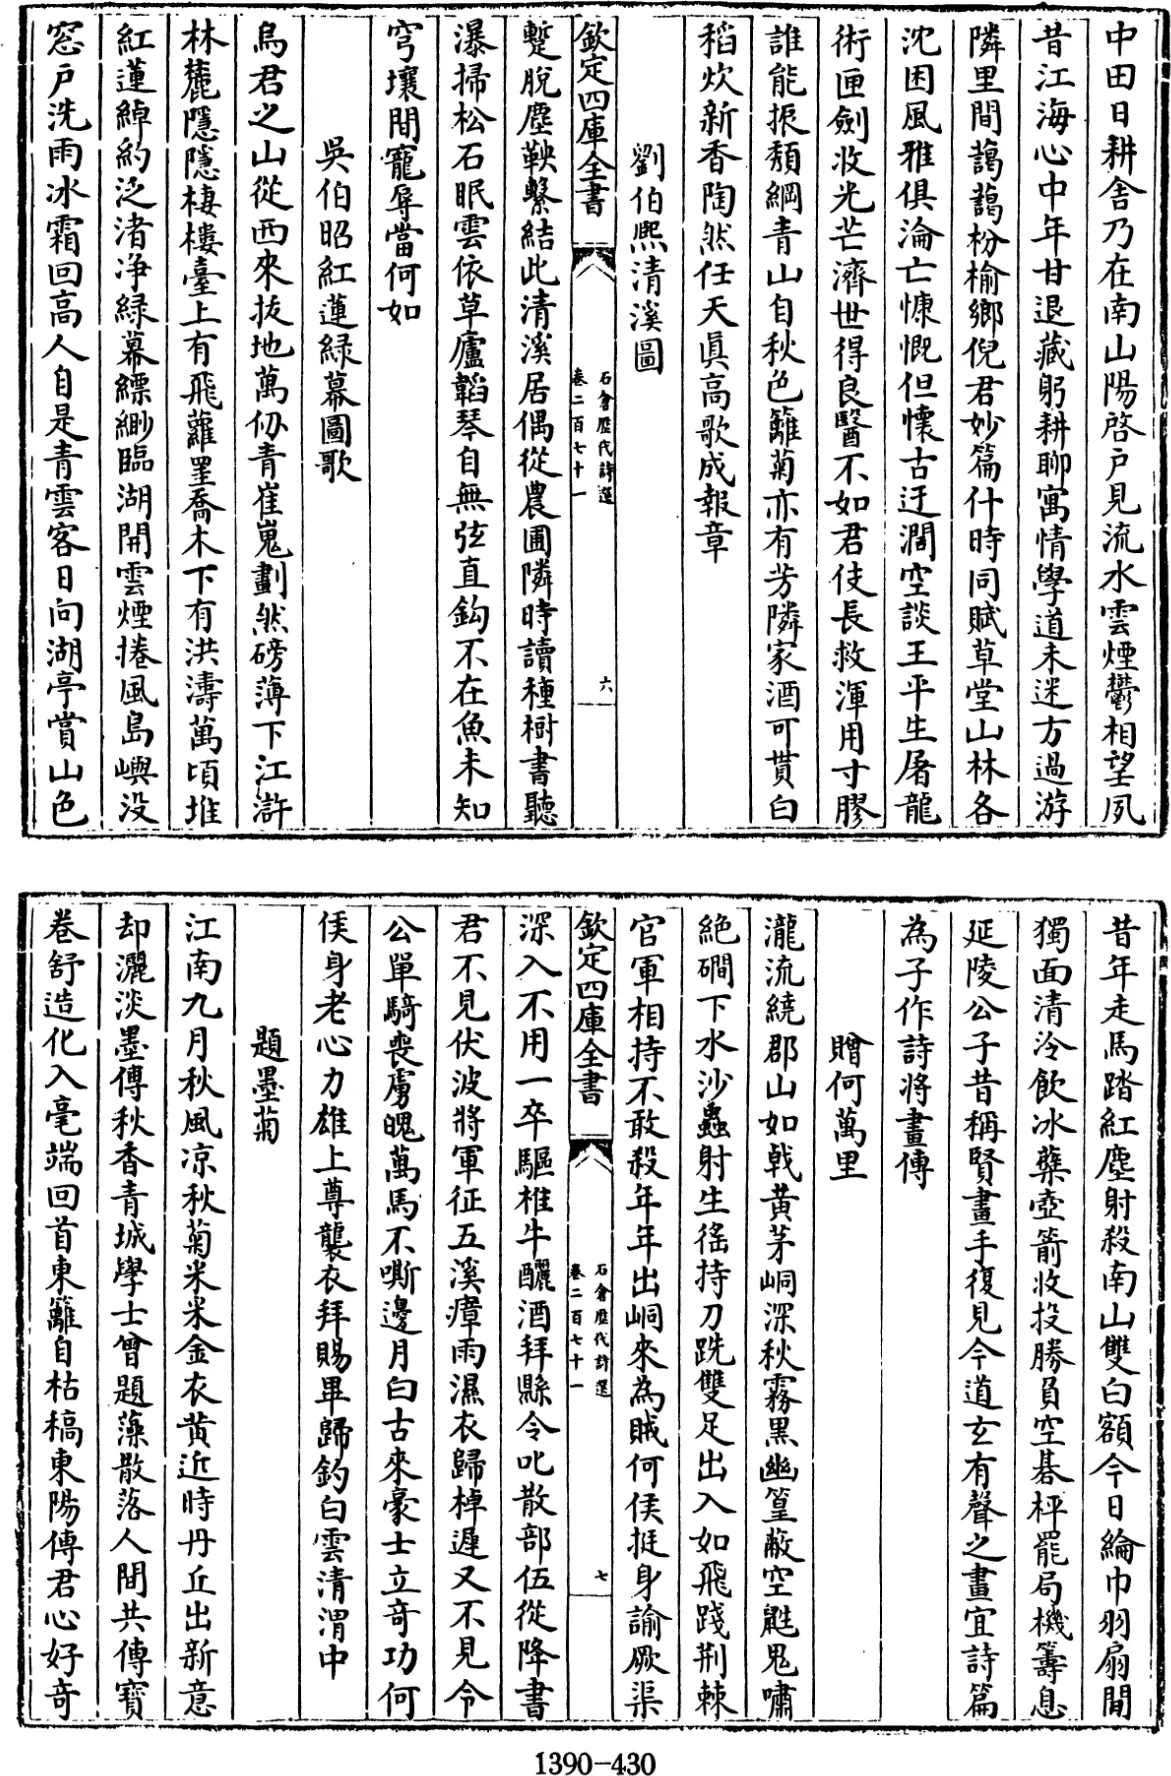 中田日耕舍乃在南山陽啓戶見流水雲煙鬱相望夙
昔江海心中年甘退藏躬耕聊寓情學道未迷方過游
隣里間藹藹枌榆鄉倪君妙篇什時同賦草堂山林各
沈困風雅俱淪亡慷慨但懷古迂濶空談王平生屠龍
術匣劍收光芒濟世得良醫不如君伎長救渾用寸膠
誰能振頽綱青山自秋色籬菊亦有芳隣家酒可貰白
稻炊新香陶然任天真高歌成報章
劉伯熙清溪圖
欽定四庫全書
石倉歷代詩選
卷二百七十一
六
蹔脫塵鞅繫結此清溪居偶從農圃隣時讀種樹書聽
瀑掃松石眠雲依草廬韜琴自無弦直鈎不在魚未知
穹壤間寵辱當何如
吳伯昭紅蓮綠幕圖歌
烏君之山從西來拔地萬仞青崔嵬劃然磅薄下江滸
林麓隱隱棲樓臺上有飛蘿罣喬木下有洪濤萬頃堆
紅蓮綽約泛渚净綠幕縹緲臨湖開雲煙捲風島嶼没
窓戶洗雨冰霜回高人自是青雲客日向湖亭賞山色
昔年走馬踏紅塵射殺南山雙白額今日綸巾羽扇閒
獨面清泠飲冰蘗壺箭收投勝負空碁枰罷局機籌息
延陵公子昔稱賢畫手復見今道玄有聲之畫宜詩篇
為子作詩將畫傳
贈何萬里
瀧流繞郡山如戟黄茅峒深秋霧黑幽篁蔽空鼪鬼嘯
絶磵下水沙蟲射生徭持刀跣雙足出入如飛踐荆棘
官軍相持不敢殺年年出峒來為賊何侯挺身諭厥渠
欽定四庫全書
石倉歷代詩選
卷二百七十一
七
深入不用一卒驅椎牛釃酒拜縣令叱散部伍從降書
君不見伏波將軍征五溪瘴雨濕衣歸棹遲又不見令
公單騎喪虜魄萬馬不嘶邊月白古來豪士立奇功何
侯身老心力雄上尊襲衣拜賜畢歸釣白雲清渭中
題墨菊
江南九月秋風凉秋菊米米金衣黄近時丹丘出新意
却灑淡墨傳秋香青城學士曾題藻散落人間共傳寶
卷舒造化入毫端回首東籬自枯槁東陽傅君心好奇
1390-430